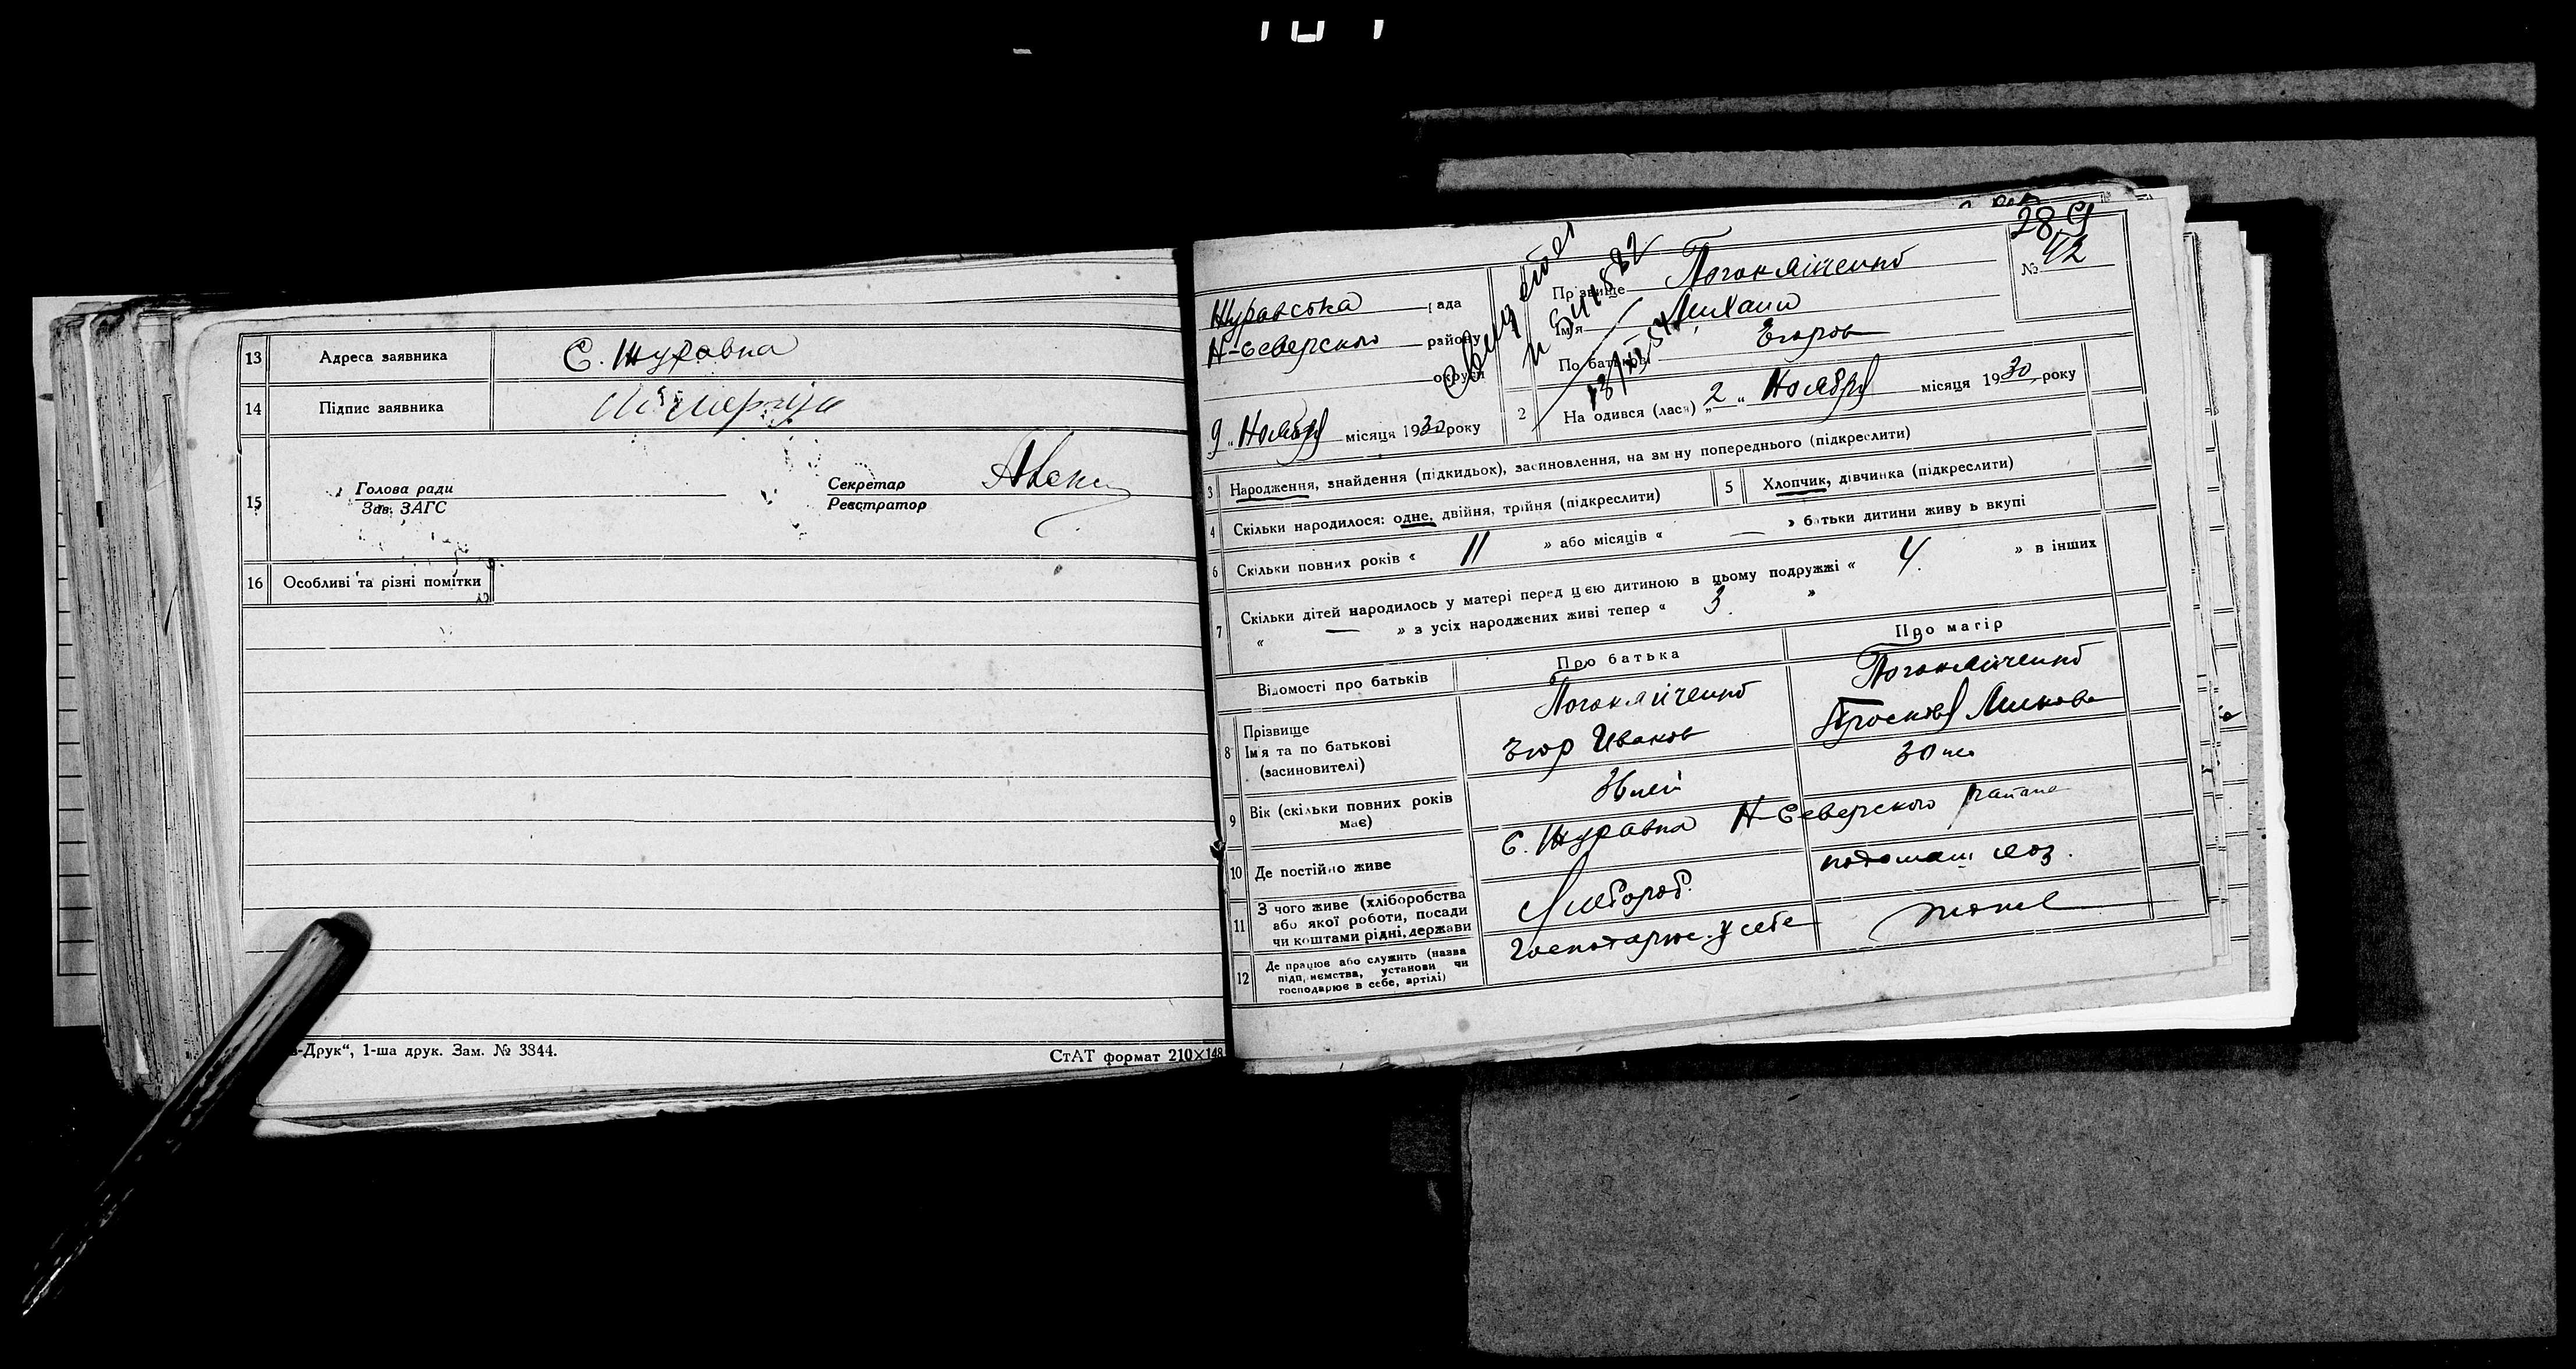 13 Адреса заявника С. Журавка
14 Підпис заявника
15 Голова ради
Зав. ЗАГС
Секретар
Реєстратор
16 Особливі та різні помітки
-Друк“, 1-ша друк. Зам. № 3844.
СтАТ формат 210×148
289
№ 42
Журавська рада
Н-Северского району
округи
9 „ Ноября місяця 1930 року
Прізвище
Ім'я Михаил
По батькові Егоров
2 Народився (лася) „ 2 “ Ноября місяця 1930 року
3 Народження, знайдення (підкидьок), засиновлення, на зміну попереднього (підкреслити)
4 Скільки народилося: одне, двійня, трійня (підкреслити)
5 Хлопчик, дівчинка (підкреслити)
6 Скільки повних років « 11 » або місяців « — » батьки дитини живуть вкупі
7 Скільки дітей народилось у матері перед цією дитиною в цьому подружжі « 4. » в інших
« — » з усіх народжених живі тепер « 3. »
Відомості про батьків
Про батька
Про матір
8 Прізвище
Ім'я та по батькові
(засиновителі)
Егор Иванов
9 Вік (скільки повних років
має)
36 лет
30 лет
10 Де постійно живе
С. Журавка Н-Северского района
11 З чого живе (хліборобства
або якої роботи, посади
чи коштами рідні, держави
12 Де працює або служить (назва
підприємства, установи чи
господарює в себе, артілі)
господарює у себе